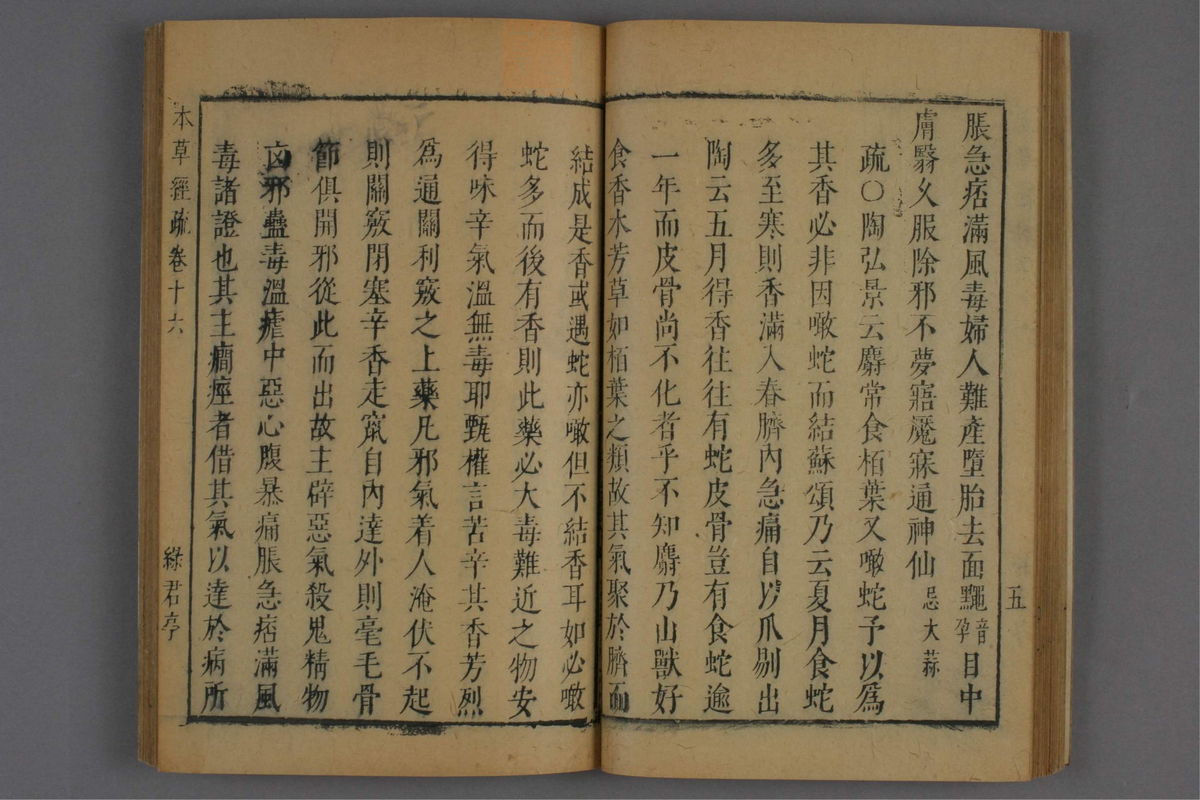 脹急痞滿風毒婦人難産墮胎去面䵴音孕目中
膚翳久服除邪不夢寤魘寐通神仙忌大蒜
疏○陶弘景云麝常食栢葉又噉蛇予以爲
其香必非因噉蛇而結蘇頌乃云夏月食蛇
多至寒則香滿入春臍內急痛自以爪剔出
陶云五月得香往往有蛇皮骨豈有食蛇逾
一年而皮骨尚不化者乎不知麝乃山獸好
食香木芳草如栢葉之類故其氣聚於臍而
五
結成是香或遇蛇亦噉但不結香耳如必噉
蛇多而後有香則此藥必大毒難近之物安
得味辛氣溫無毒耶甄權言苦辛其香芳烈
爲通關利竅之上藥凡邪氣着人淹伏不起
則關竅閉塞辛香走竄自內達外則毫毛骨
節俱開邪從此而出故主辟惡氣殺鬼精物
凶邪蠱毒溫瘧中惡心腹暴痛脹急痞滿風
毒諸證也其主癎痙者借其氣以達於病所
本草經疏卷十六
綠君亭